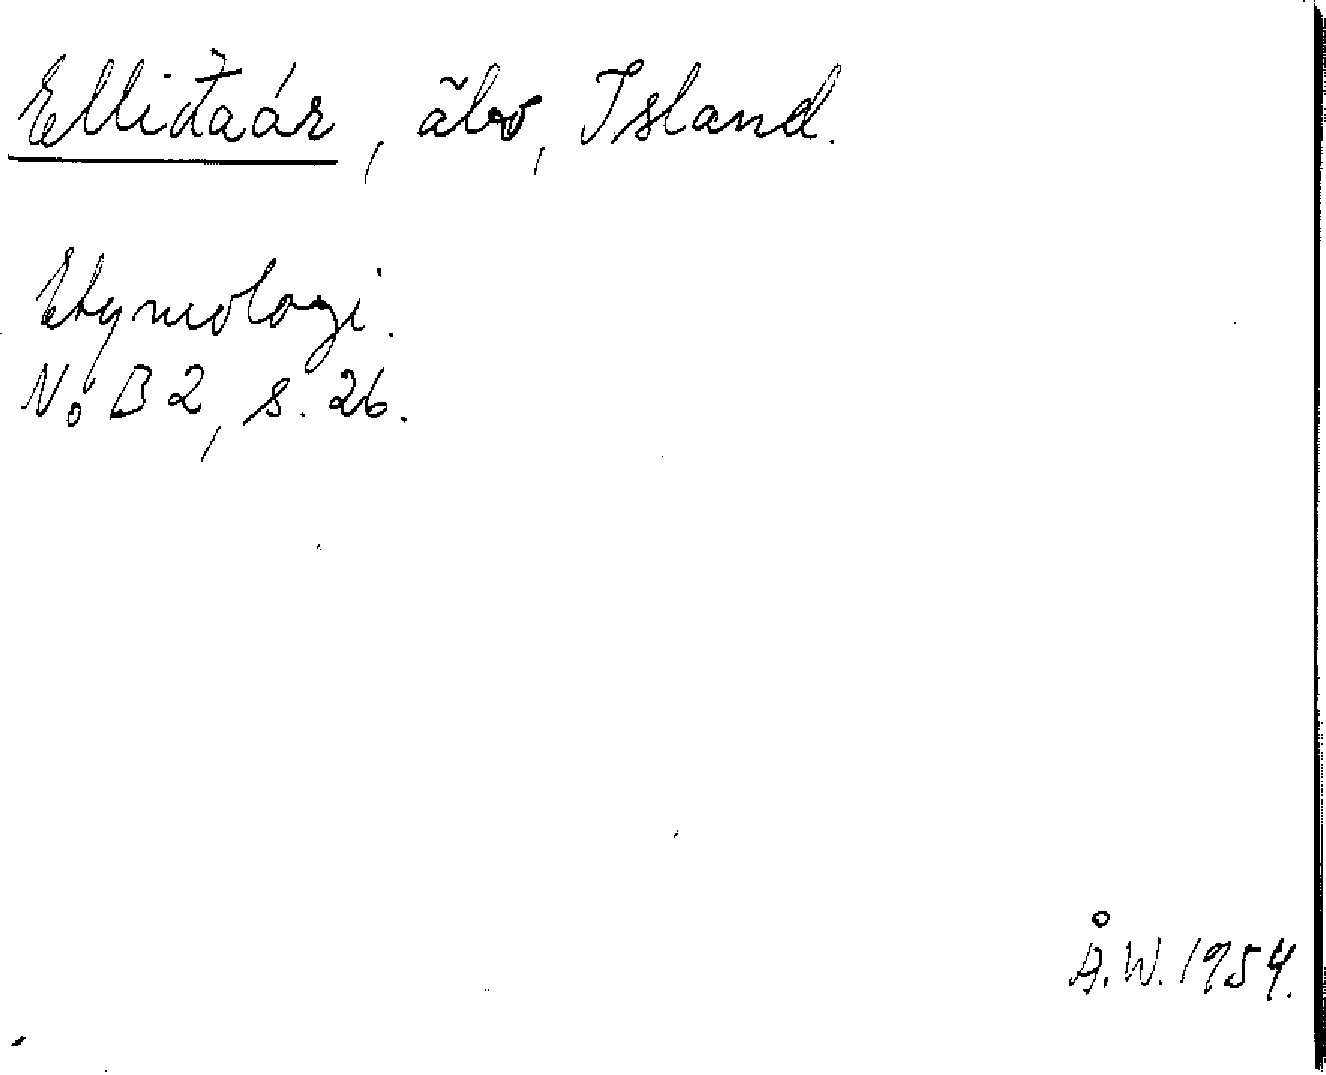 Elliðaár, älv, Island.
Etymologi.
NoB 2, s. 26.
Å.W. 1954.